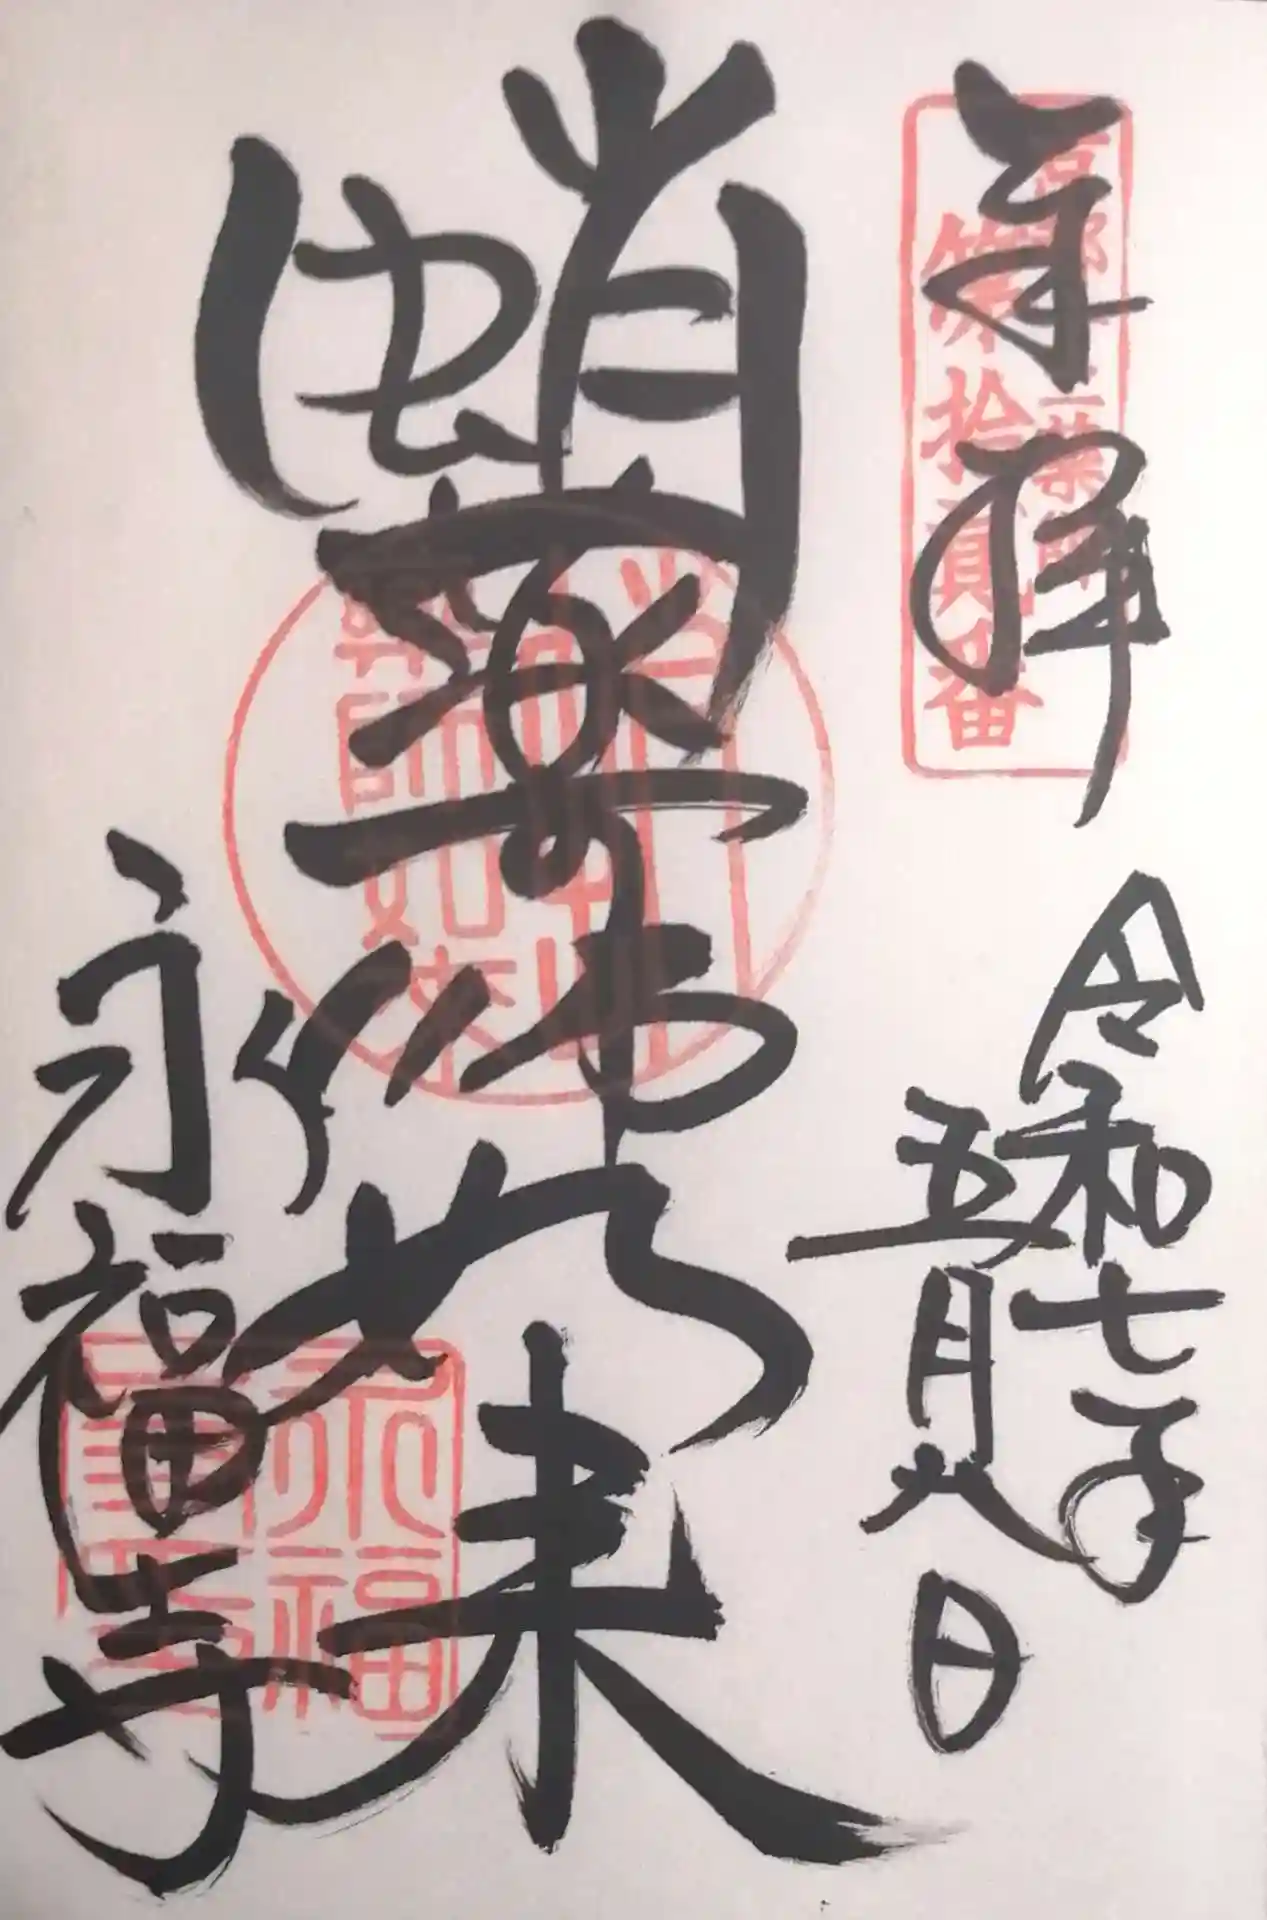 奉拝
京都十二薬師
第拾貳番
令和七年
五月八日
蛸薬師如来
薬師如来
永福寺
永福